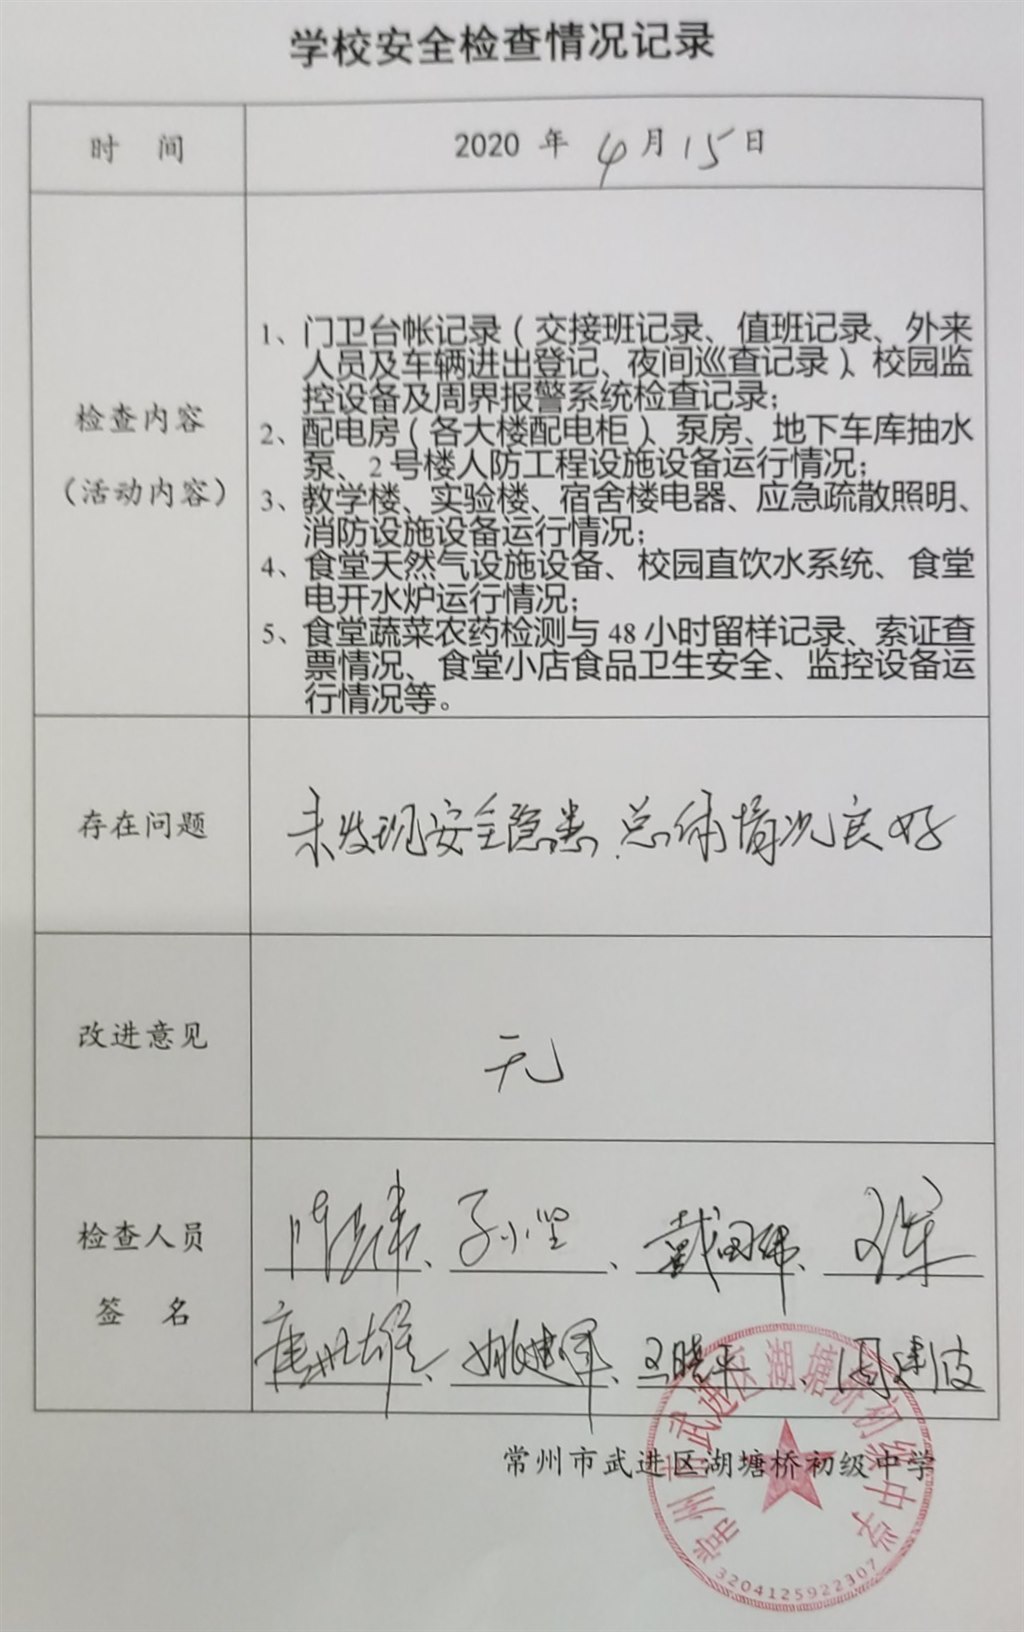 学校安全检查情况记录
时 间
2020 年 4 月 15 日
检查内容
（活动内容）
1、门卫台帐记录（交接班记录、值班记录、外来
人员及车辆进出登记、夜间巡查记录）、校园监
控设备及周界报警系统检查记录；
2、配电房（各大楼配电柜）、泵房、地下车库抽水
泵、2 号楼人防工程设施设备运行情况；
3、教学楼、实验楼、宿舍楼电器、应急疏散照明、
消防设施设备运行情况；
4、食堂天然气设施设备、校园直饮水系统、食堂
电开水炉运行情况；
5、食堂蔬菜农药检测与 48 小时留样记录、索证查
票情况、食堂小店食品卫生安全、监控设备运
行情况等。
存在问题
未发现安全隐患.总体情况良好
改进意见
无
检查人员
签 名
、孙小坚、戴国伟、
、姚建军、王晓平、周建波
常州市武进区湖塘桥初级中学
常州市武进区湖塘桥初级中学
3204125922307